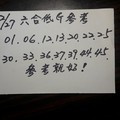 2/27 六合低斤參考
01.06.12.13.20.22.25
30.33.36.37.39.44.45
參考就好!